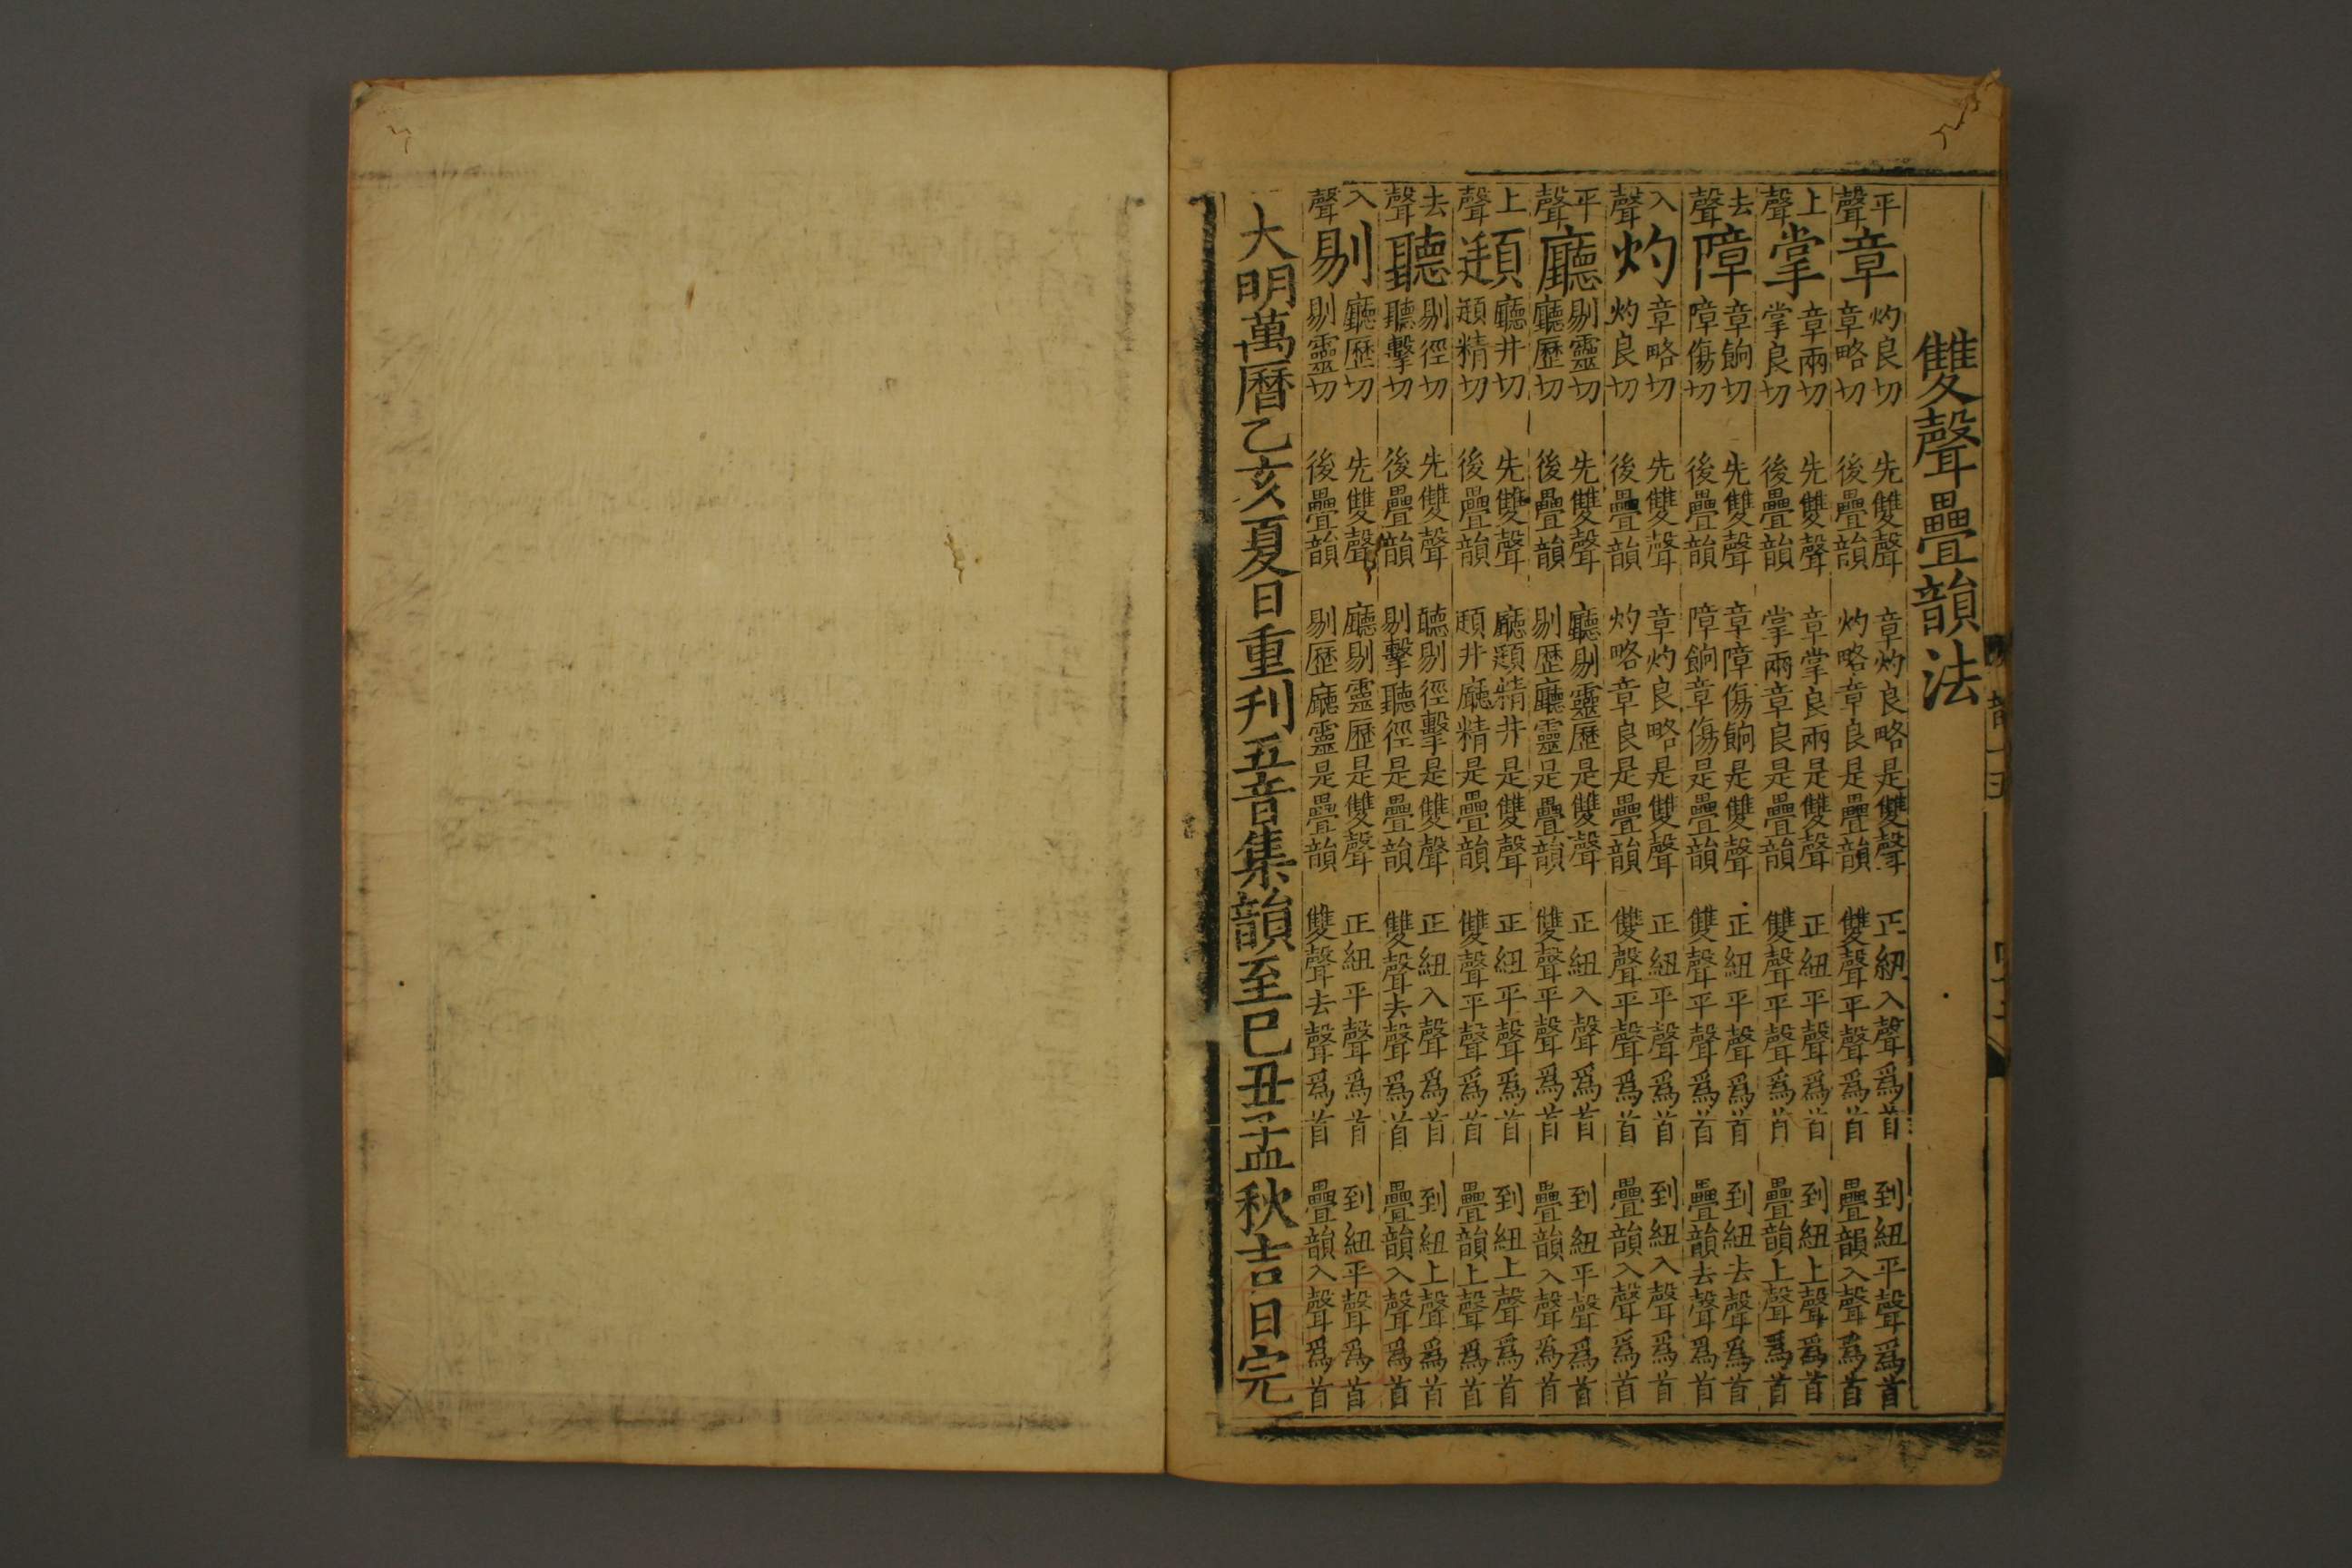 雙聲疊韻法
平聲章灼良切章略切先雙聲後疊韻章灼良略是雙聲灼略章良是疊韻正紐入聲爲首雙聲平聲爲首到紐平聲爲首疊韻入聲爲首
上聲掌章兩切掌良切先雙聲後疊韻章掌良兩是雙聲掌兩章良是疊韻正紐平聲爲首雙聲平聲爲首到紐上聲爲首疊韻上聲爲首
去聲障章餉切障傷切先雙聲後疊韻章障傷餉是雙聲障餉章傷是疊韻正紐平聲爲首雙聲平聲爲首到紐去聲爲首疊韻去聲爲首
入聲灼章略切灼良切先雙聲後疊韻章灼良略是雙聲灼略章良是疊韻正紐平聲爲首雙聲平聲爲首到紐入聲爲首疊韻入聲爲首
平聲廳剔靈切廳歷切先雙聲後疊韻廳剔靈歷是雙聲剔歷廳靈是疊韻正紐入聲爲首雙聲平聲爲首到紐平聲爲首疊韻入聲爲首
上聲頲廳井切頲精切先雙聲後疊韻廳頲精井是雙聲頲井廳精是疊韻正紐平聲爲首雙聲平聲爲首到紐上聲爲首疊韻上聲爲首
去聲聽剔徑切聽擊切先雙聲後疊韻聽剔徑擊是雙聲剔擊聽徑是疊韻正紐入聲爲首雙聲去聲爲首到紐上聲爲首疊韻入聲爲首
入聲剔廳歷切剔靈切先雙聲後疊韻廳剔靈歷是雙聲剔歷廳靈是疊韻正紐平聲爲首雙聲去聲爲首到紐平聲爲首疊韻入聲爲首
大明萬曆乙亥夏日重刊五音集韻至巳丑孟秋吉日完